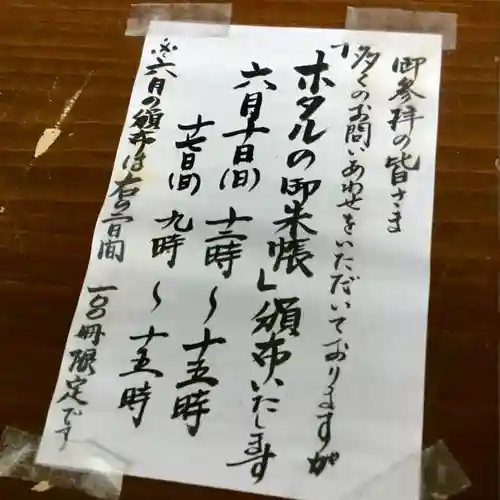 御参拝の皆さま
多くのお問いあわせをいただいておりますが
「ホタルの御朱帳」頒布いたします
六月十日(日) 十二時～十五時
十七日(日) 九時～十五時
※六月の頒布は右の二日間 一〇〇冊限定です